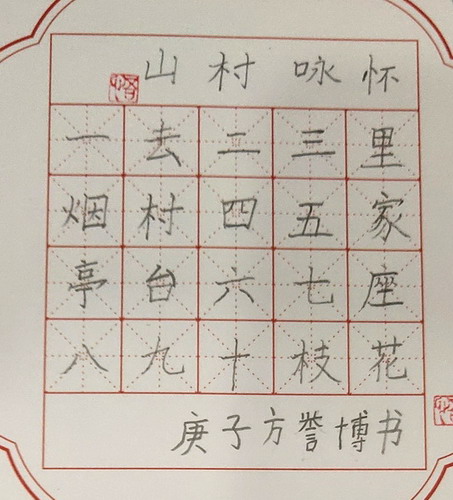 山村咏怀
一去二三里
烟村四五家
亭台六七座
八九十枝花
庚子方誉博书